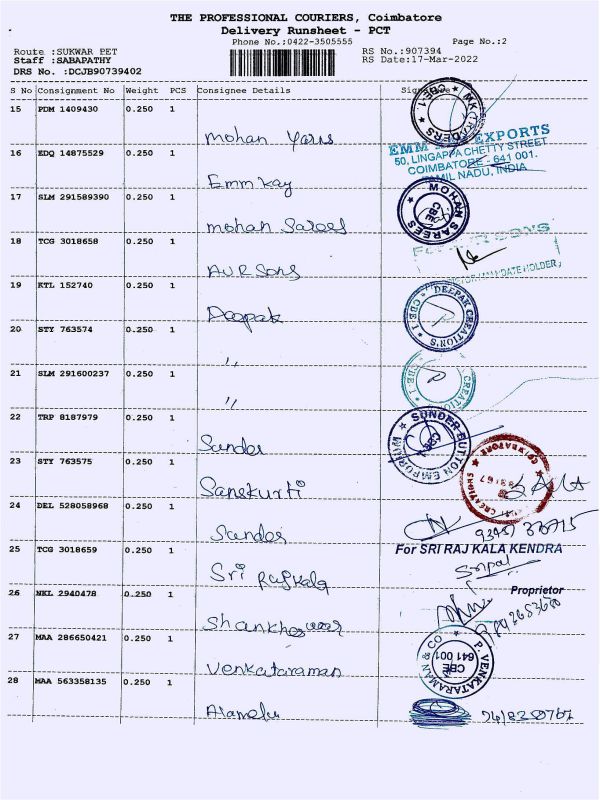 THE PROFESSIONAL COURIERS, Coimbatore
Delivery Runsheet - PCT
Phone No.:0422-3505555 Page No.:2
Route :SUKWAR PET RS No.:907394
Staff :SABAPATHY RS Date:17-Mar-2022
DRS No. :DCJB90739402
S No Consignment No Weight PCS Consignee Details
15 PDM 1409430 0.250 1
mohan
16 EDQ 14875529 0.250 1
EXPORTS
50, LINGAPPA CHETTY STREET
COIMBATORE - 641 001.
TAMIL NADU, INDIA
Emm Kay
17 SLM 291589390 0.250 1
MOHAN SAREES CBE
mohan Sarees
18 TCG 3018658 0.250 1
AVR Sons
19 KTL 152740 0.250 1
DEEPAK CREATION'S CBE-1
Deepak
20 STY 763574 0.250 1
"
21 SLM 291600237 0.250 1
"
22 TRP 8187979 0.250 1
SUNDER BUTTON EMPORIUM
23 STY 763575 0.250 1
COIMBATORE
Sanskurti
24 DEL 528058968 0.250 1
25 TCG 3018659 0.250 1
For SRI RAJ KALA KENDRA
Sri Rajkala
Proprietor
26 NKL 2940478 0.250 1
27 MAA 286650421 0.250 1
P. VENKATARAMAN & CO CBE 641 001
Venkataraman
28 MAA 563358135 0.250 1
Alamelu